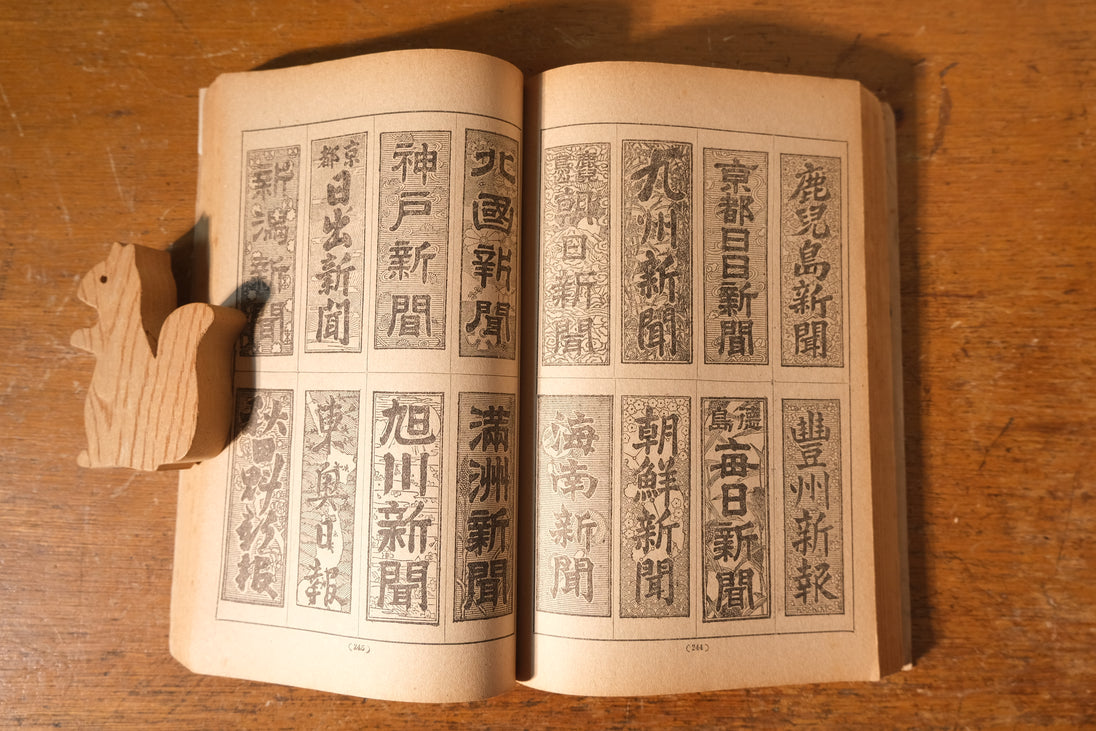 鹿兒島新聞
京都日日新聞
九州新聞
鹿兒島朝日新聞
豐州新報
德島毎日新聞
朝鮮新聞
海南新聞
(244)
北國新聞
神戸新聞
京都日出新聞
新潟新聞
滿洲新聞
旭川新聞
東奥日報
秋田魁新報
(245)